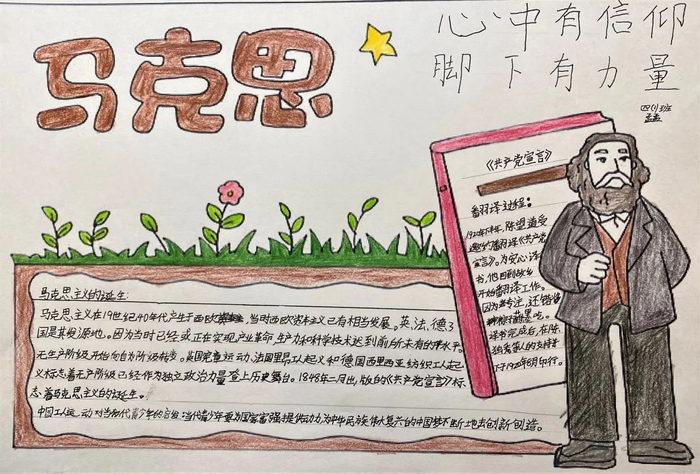 马克思
心中有信仰
脚下有力量
四(1)班
《共产党宣言》
翻译过程:
1920年早春,陈望道受
邀约翻译《共产党
宣言》。为安心译
书,他回到故乡
开始翻译工作。
因为专注,还错将
墨吃。
译书完成后,在陈
独秀等人的支持下
于1920年8月印行。
马克思主义的诞生:
马克思主义在19世纪40年代产生于西欧,当时西欧资本主义已有相当发展。英、法、德3
国是其发源地。因为当时已经或正在实现产业革命,生产力和科学技术达到前所未有的水平。
无生产阶级开始向自为阶级转变。英国宪章运动、法国里昂工人起义和德国西里西亚纺织工人起
义标志着无产阶级已经作为独立政治力量登上历史舞台。1848年二月出版的《共产党宣言》标
志着马克思主义的诞生。
中国工人运动对当初代青少年的启发:当代青少年要为国家富强提供动力,为中华民族伟大复兴的中国梦不断地去创新创造。